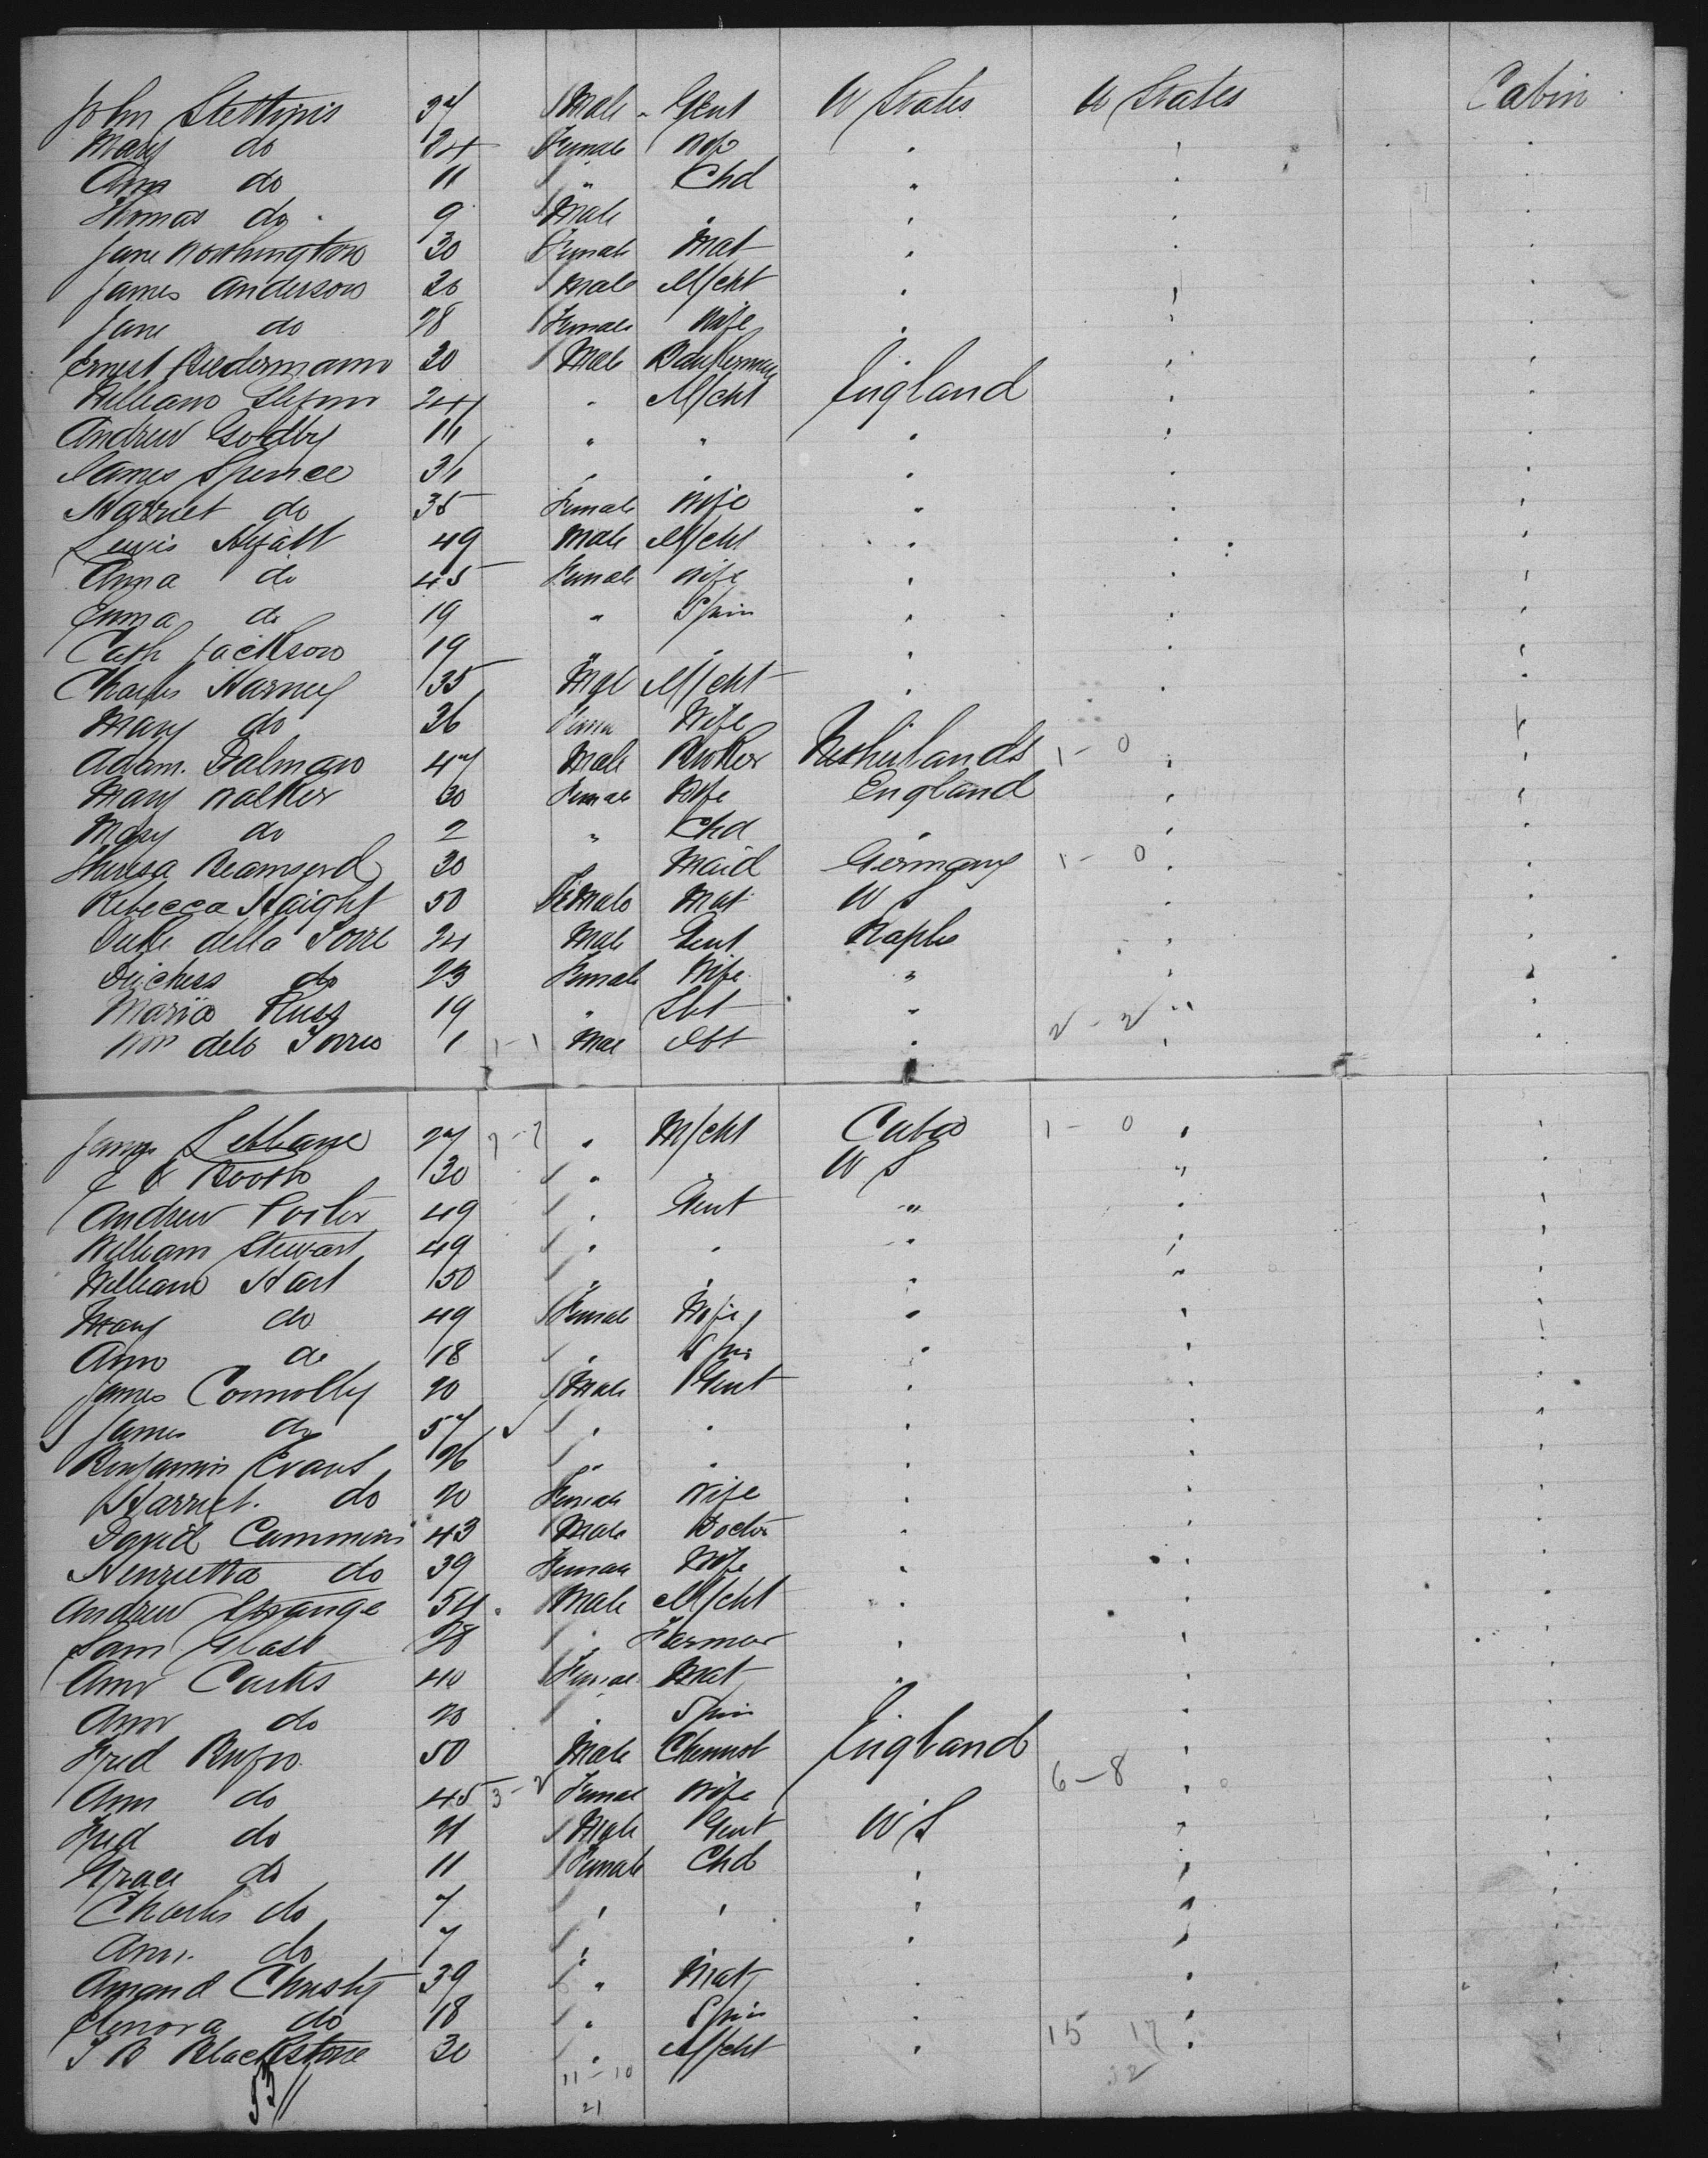 John Stettinis 37 Male " Gent U States U States Cabin
Mary do 24 Female Wife " " "
Ann do 11 " Chd " " "
Thomas do 9 Male " " " "
Jane Worthington 30 Female Mat " " "
James Anderson 26 Male M/cht " " "
Jane do 28 Female Wife " " "
Ernest 30 Male " "
William 24 " M/cht England " "
Andrew Goldby " " " " "
James Spence " " " " "
Harriet do 35 Female Wife " " "
Lewis Hyatt 49 Male M/cht " " "
Anna do 45 Female Wife " " "
Emma do 19 " Spin " " "
Cath Jackson 19 " " " " "
Charles Harney 35 Male M/cht " " "
Mary do 26 Fema Wife " " "
Adam. Dalman 47 Male Broker Netherlands 1-0 " "
Mary Walker 30 Female Wife England " "
Mary do 2 " Chd " " "
Theresa 30 Maid Germany 1-0 " "
Rebecca Haight 50 Female Mat U S " "
Duke della Torre 24 Male Gent Naples " "
Duchess do 23 Female Wife " " "
Maria 19 " " 2-2 " "
della Torre 1 1-1 Mal " " "
James 27 " M/cht Cuba 1-0 " "
E Booth 30 " " U S " "
Andrew Porter 49 " Gent " " "
William Stewart 49 " " " " "
William Hart 50 " " " " "
Mary do 49 Female Wife " " "
Ann do 18 " Spin " " "
James Connolly 20 Male Gent " " "
James do 57 " " " " "
Benjamin Evans 26 " " " " "
Harriet. do 20 Female Wife " " "
David Cummins 43 Male Doctor " " "
Henrietta do 39 Female Wife " " "
Andrew Strange 54 Male M/cht " " "
Sam 28 " Farmer " " "
Ann Curtis 40 Female Mat " " "
Ann do 20 " Spin " " "
Fred 50 Male Chemist England " "
Ann do 45 3-2 Female Wife 6-8 " "
Fred do 21 Male Gent U S " "
Grace do 11 Female Chd " " "
Charles do 7 " " " " "
Ann. do 7 " " " "
Amand Christy 39 " Mat " " "
Elenora do 18 " Spin " " "
J B Blackstone 30 " M/cht " 15 17 " "
53 11-10 32
21